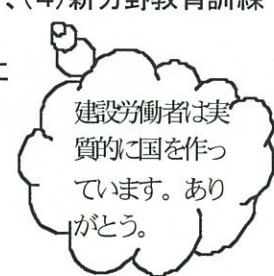 、(4)新分野教育訓練
に
建設労働者は実
質的に国を作っ
ています。あり
がとう。